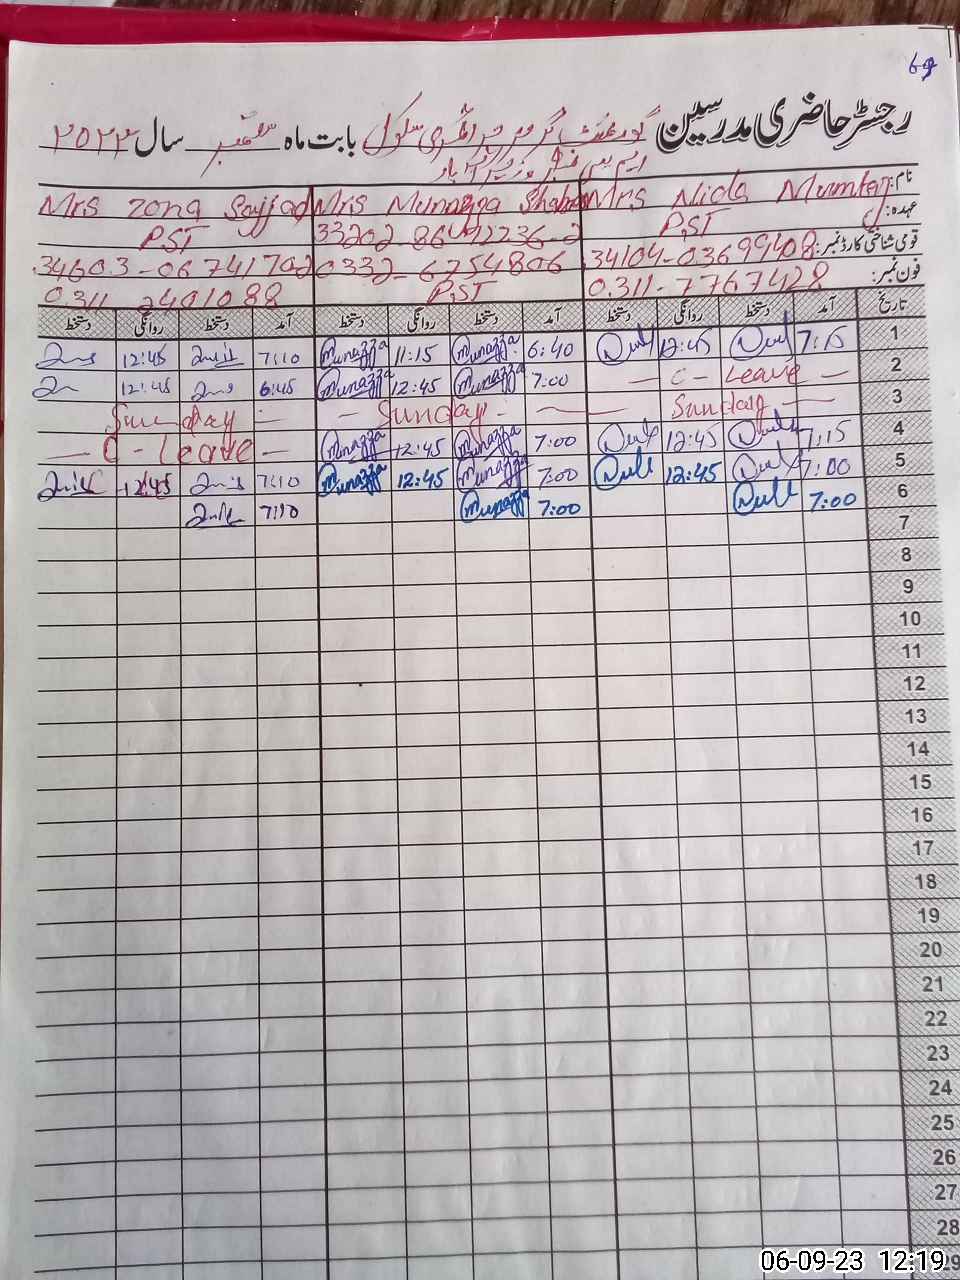 69
رجسٹر حاضری مدرسین گورنمنٹ گرلز پرائمری سکول بابت ماہ ستمبر سال ۲۰۲۳
نام: Mrs Nida Mumtaz Mrs Munazza Shaheen Mrs Zona Sajjad
عہدہ: PST 33202-8642236-2 PST
قومی شناختی کارڈ نمبر: 34104-03699408 0332-6754806 34603-06741702
فون نمبر: 0311-7767428 PST 0311-2401088
تاریخ آمد دستخط روانگی دستخط آمد دستخط روانگی دستخط آمد دستخط روانگی دستخط
1 7:15 12:45 6:40 Munazza 11:15 Munazza 7:10 12:45
2 — C - Leave — 7:00 Munazza 12:45 Munazza 6:45 12:45
3 Sunday — — Sunday — Sunday
4 7:15 12:45 7:00 Munazza 12:45 Munazza — C - Leave —
5 7:00 12:45 7:00 Munazza 12:45 Munazza 7:10 12:45
6 7:00 7:00 Munazza 7:10
7
8
9
10
11
12
13
14
15
16
17
18
19
20
21
22
23
24
25
26
27
28
29
06-09-23 12:19